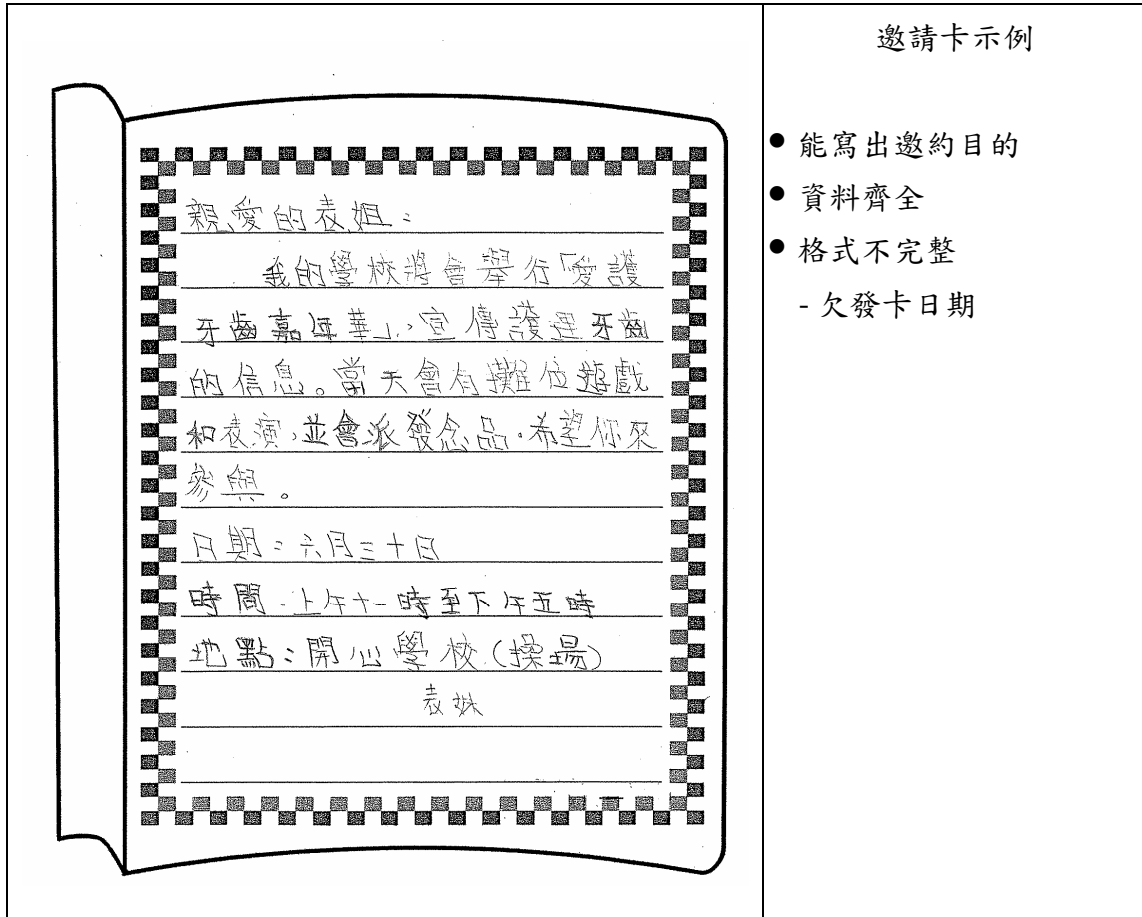 親愛的表姐：
我的學校將會舉行「愛護
牙齒嘉年華」，宣傳護理牙齒
的信息。當天會有攤位遊戲
和表演，並會派發念品。希望你來
參與。
日期：六月三十日
時間：上午十一時至下午五時
地點：開心學校（操場）
表妹
邀請卡示例
● 能寫出邀約目的
● 資料齊全
● 格式不完整
- 欠發卡日期